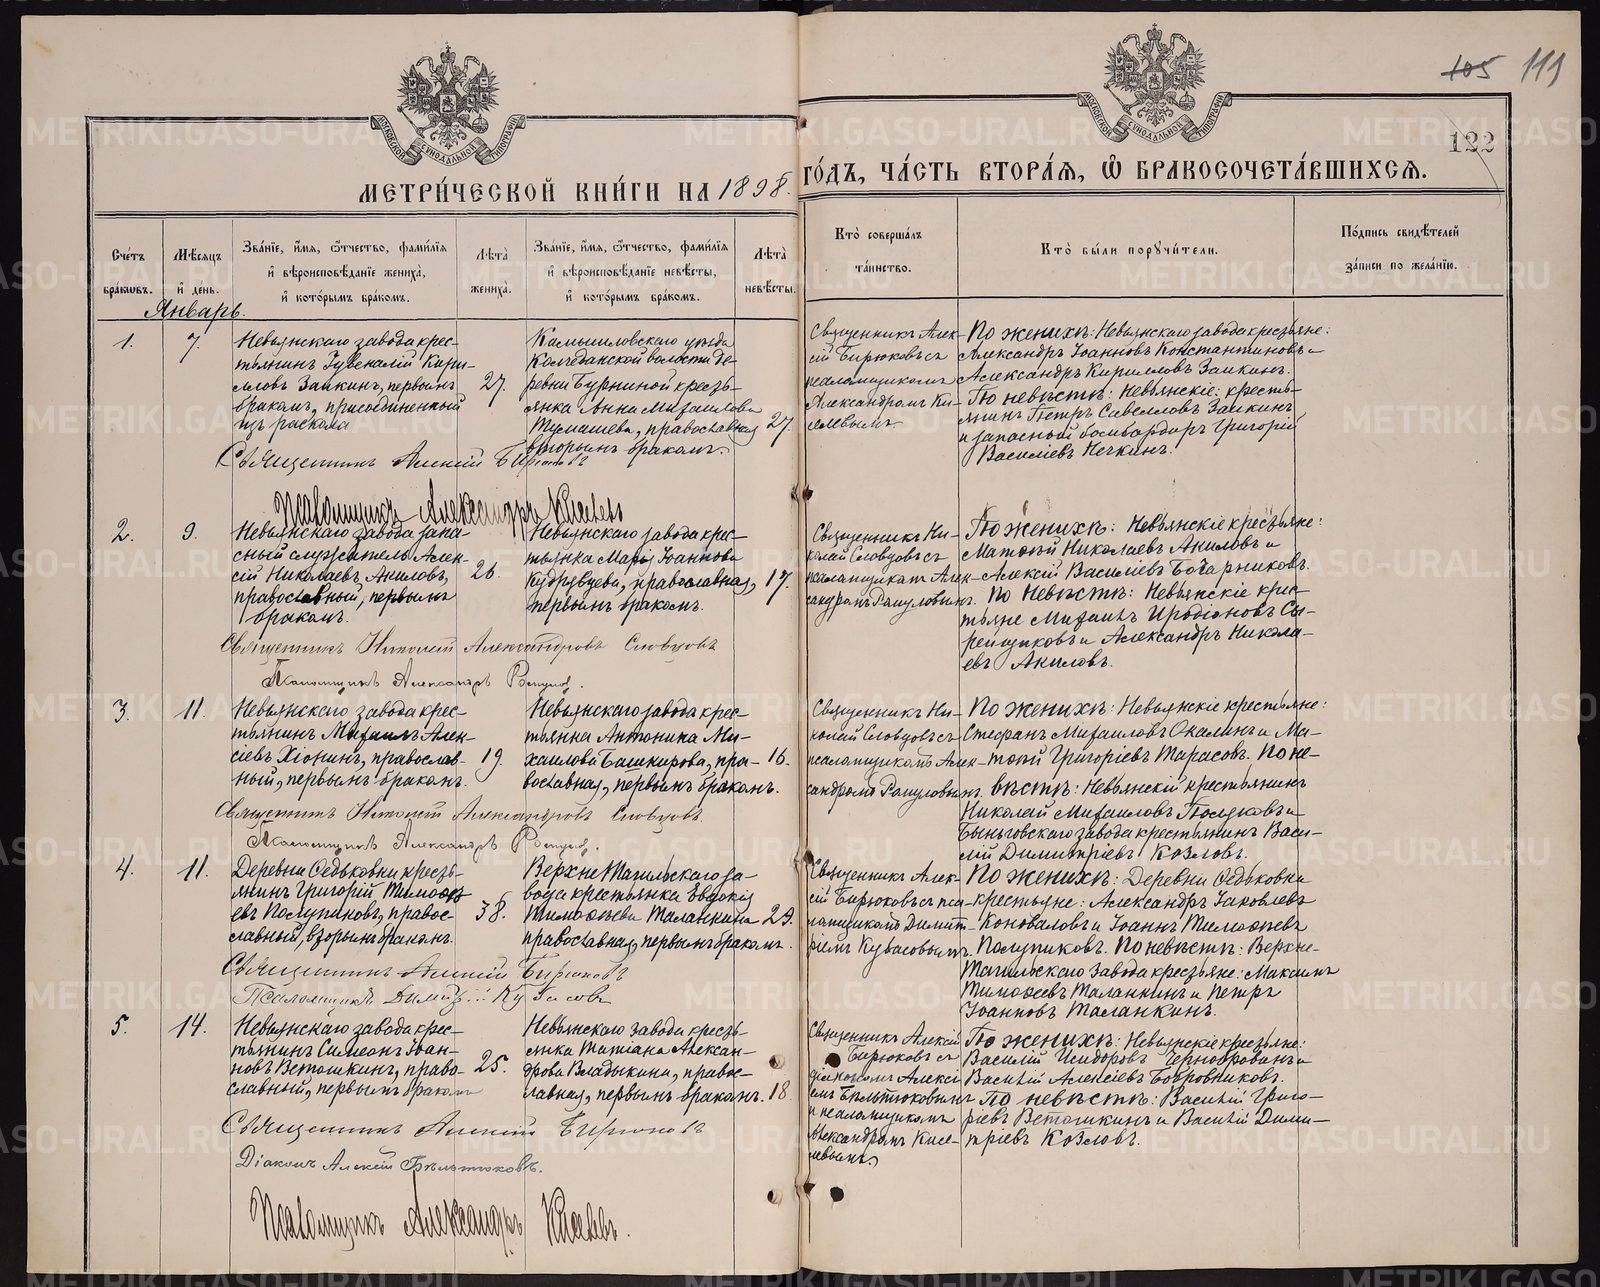 105 119
122
МОСКОВСКОЙ СѴНОДАЛЬНОЙ ТИПОГРАФІИ
МОСКОВСКОЙ СѴНОДАЛЬНОЙ ТИПОГРАФІИ
МЕТРИ́ЧЕСКОЙ КНИ́ГИ НА 1898. ГО́ДЪ, ЧА́СТЬ ВТОРА́Ѧ, Ѽ БРАКОСОЧЕТА́ВШИХСѦ.
Сче́тъ бра́кѡвъ.
Мѣ́сѧцъ и҆ де́нь.
Зва́нїе, и҆́мѧ, ѻ҆́тчество, фами́лїѧ и҆ вѣроисповѣ́данїе жениха̀, и҆ кото́рымъ бра́комъ.
Лѣ́та жениха̀.
Зва́нїе, и҆́мѧ, ѻ҆́тчество, фами́лїѧ и҆ вѣроисповѣ́данїе невѣ́сты, и҆ кото́рымъ бра́комъ.
Лѣ́та невѣ́сты.
Кто̀ соверша́лъ та́инство.
Кто̀ бы́ли порꙋчи́тели.
По́дпись свидѣ́телей за́писи по жела́нїю.
Январь.
1.
7.
Невьянскаго завода крес-
тьянинъ Іувеналій Кири-
лловъ Заикинъ, первымъ
бракомъ, присоединенный
изъ раскола
27.
Камышловскаго уѣзда
Колчеданской волости де-
ревни Бурниной кресть-
янка Анна Михаилова
православная
вторымъ бракомъ.
27.
Священникъ Алек-
сій Бирюковъ съ
псаломщикомъ
Александромъ Ки-
селевымъ.
По женихѣ: Невьянскаго завода крестьяне:
Александръ Іоанновъ Константиновъ и
Александръ Кирилловъ Заикинъ.
По невѣстѣ: Невьянскіе: кресть-
янинъ Петръ Савелловъ Заикинъ
и запасный бомбардиръ Григорій
Василіевъ Нечкинъ.
Священникъ Алексій Бирюковъ
Псаломщикъ Александръ Киселевъ
2.
9.
Невьянскаго завода запа-
сный служитель Алек-
сій Николаевъ Акиловъ,
православный, первымъ
бракомъ.
26.
Невьянскаго завода крес-
тьянка Марія Іоаннова
Кудрявцева, православная,
первымъ бракомъ.
17.
Священникъ Ни-
колай Словцовъ съ
псаломщикомъ Алек-
сандромъ
По женихѣ: Невьянскіе крестьяне:
Матѳій Николаевъ Акиловъ и
Алексій Василіевъ Бочарниковъ.
По невѣстѣ: Невьянскіе крес-
тьяне Михаилъ Иродіоновъ Сы-
рейщиковъ и Александръ Никола-
евъ Акиловъ.
Священникъ Николай Александровъ Словцовъ
Псаломщикъ Александръ
3.
11.
Невьянскаго завода крес-
тьянинъ Михаилъ Алек-
сіевъ Хіонинъ, православ-
ный, первымъ бракомъ.
19.
Невьянскаго завода крес-
тьянка Антонина Ми-
хаилова Башкирова, пра-
вославная, первымъ бракомъ.
16.
Священникъ Ни-
колай Словцовъ съ
псаломщикомъ Алек-
сандромъ
По женихѣ: Невьянскіе крестьяне:
Стефанъ Михаиловъ Окалинъ и Ма-
тѳій Григоріевъ Тарасовъ. По не-
вѣстѣ: Невьянскій крестьянинъ
Николай Михаиловъ и
Быньговскаго завода крестьянинъ Васи-
лій Димитріевъ Козловъ.
Священникъ Николай Александровъ Словцовъ
Псаломщикъ Александръ
4.
11.
Деревни Ѳедьковки кресть-
янинъ Григорій Тимоѳе-
евъ Полупиковъ, правос-
славный, вторымъ бракомъ.
38.
Верхне Тагильскаго за-
вода крестьянка Евдокія
Тимоѳеева Таланкина
православная, первымъ бракомъ.
29.
Священникъ Алек-
сій Бирюковъ съ пса-
ломщикомъ Димит-
ріемъ Кувасовымъ.
По женихѣ: Деревни Ѳедьковки
крестьяне: Александръ Іаковлевъ
Коноваловъ и Іоаннъ Тимоѳеевъ
Полупиковъ. По невѣстѣ: Верхне-
Тагильскаго завода крестьяне: Максимъ
Тимоѳеевъ Таланкинъ и Петръ
Іоанновъ Таланкинъ.
Священникъ Алексій Бирюковъ
Псаломщикъ Димитрій Кувасовъ
5.
14.
Невьянскаго завода крес-
тьянинъ Симеонъ Іоан-
новъ Ветошкинъ, право-
славный, первымъ бракомъ
25.
Невьянскаго завода кресть-
янка Татіана Алексан-
дрова Владыкина, правос-
лавная, первымъ бракомъ.
18
Священникъ Алексій
Бирюковъ съ
діакономъ Алексі-
емъ Бѣльтюковымъ
и псаломщикомъ
Александромъ Кисе-
левымъ.
По женихѣ: Невьянскіе крестьяне:
Василій Исидоровъ Чернобровинъ и
Василій Алексіевъ Бобровниковъ.
По невѣстѣ: Василій Григо-
ріевъ Ветошкинъ и Василій Дими-
тріевъ Козловъ.
Священникъ Алексій Бирюковъ
Діаконъ Алексій Бѣльтюковъ.
Псаломщикъ Александръ Киселевъ.
METRIKI.GASO-URAL.RU